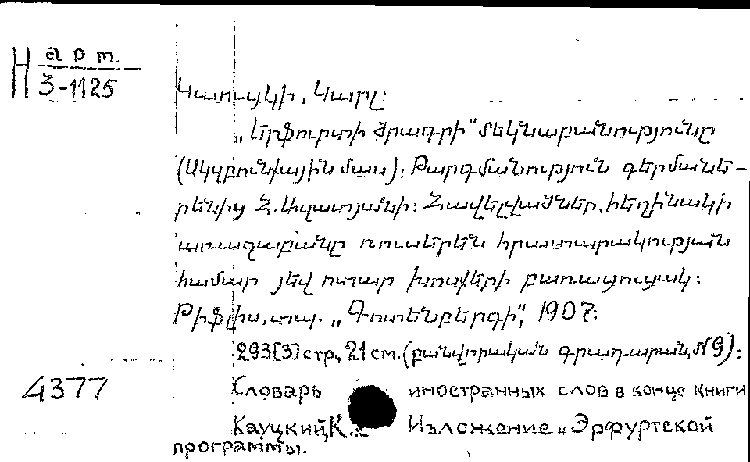 H арт.
З-1125
Կաուցկի, Կարլ:
„Երֆուրտի ծրագրի" մեկնաբանությունը
(Սկզբունքային մաս): Թարգմանություն գերմանե-
րենից Հ. Ազատյանի: Հավելվածներ. հեղինակի
առաջաբանը ռուսերեն հրատարակության
համար յեվ ոտար խոսքերի բառացուցակ:
Թիֆլիս, տպ. „Գուտենբերգի", 1907:
293[3] стр., 21 см. (բանվորական գրադարան, №9):
4377
Словарь иностранных слов в конце книги
Кауцкий, К. Изложение „Эрфуртской
программы.